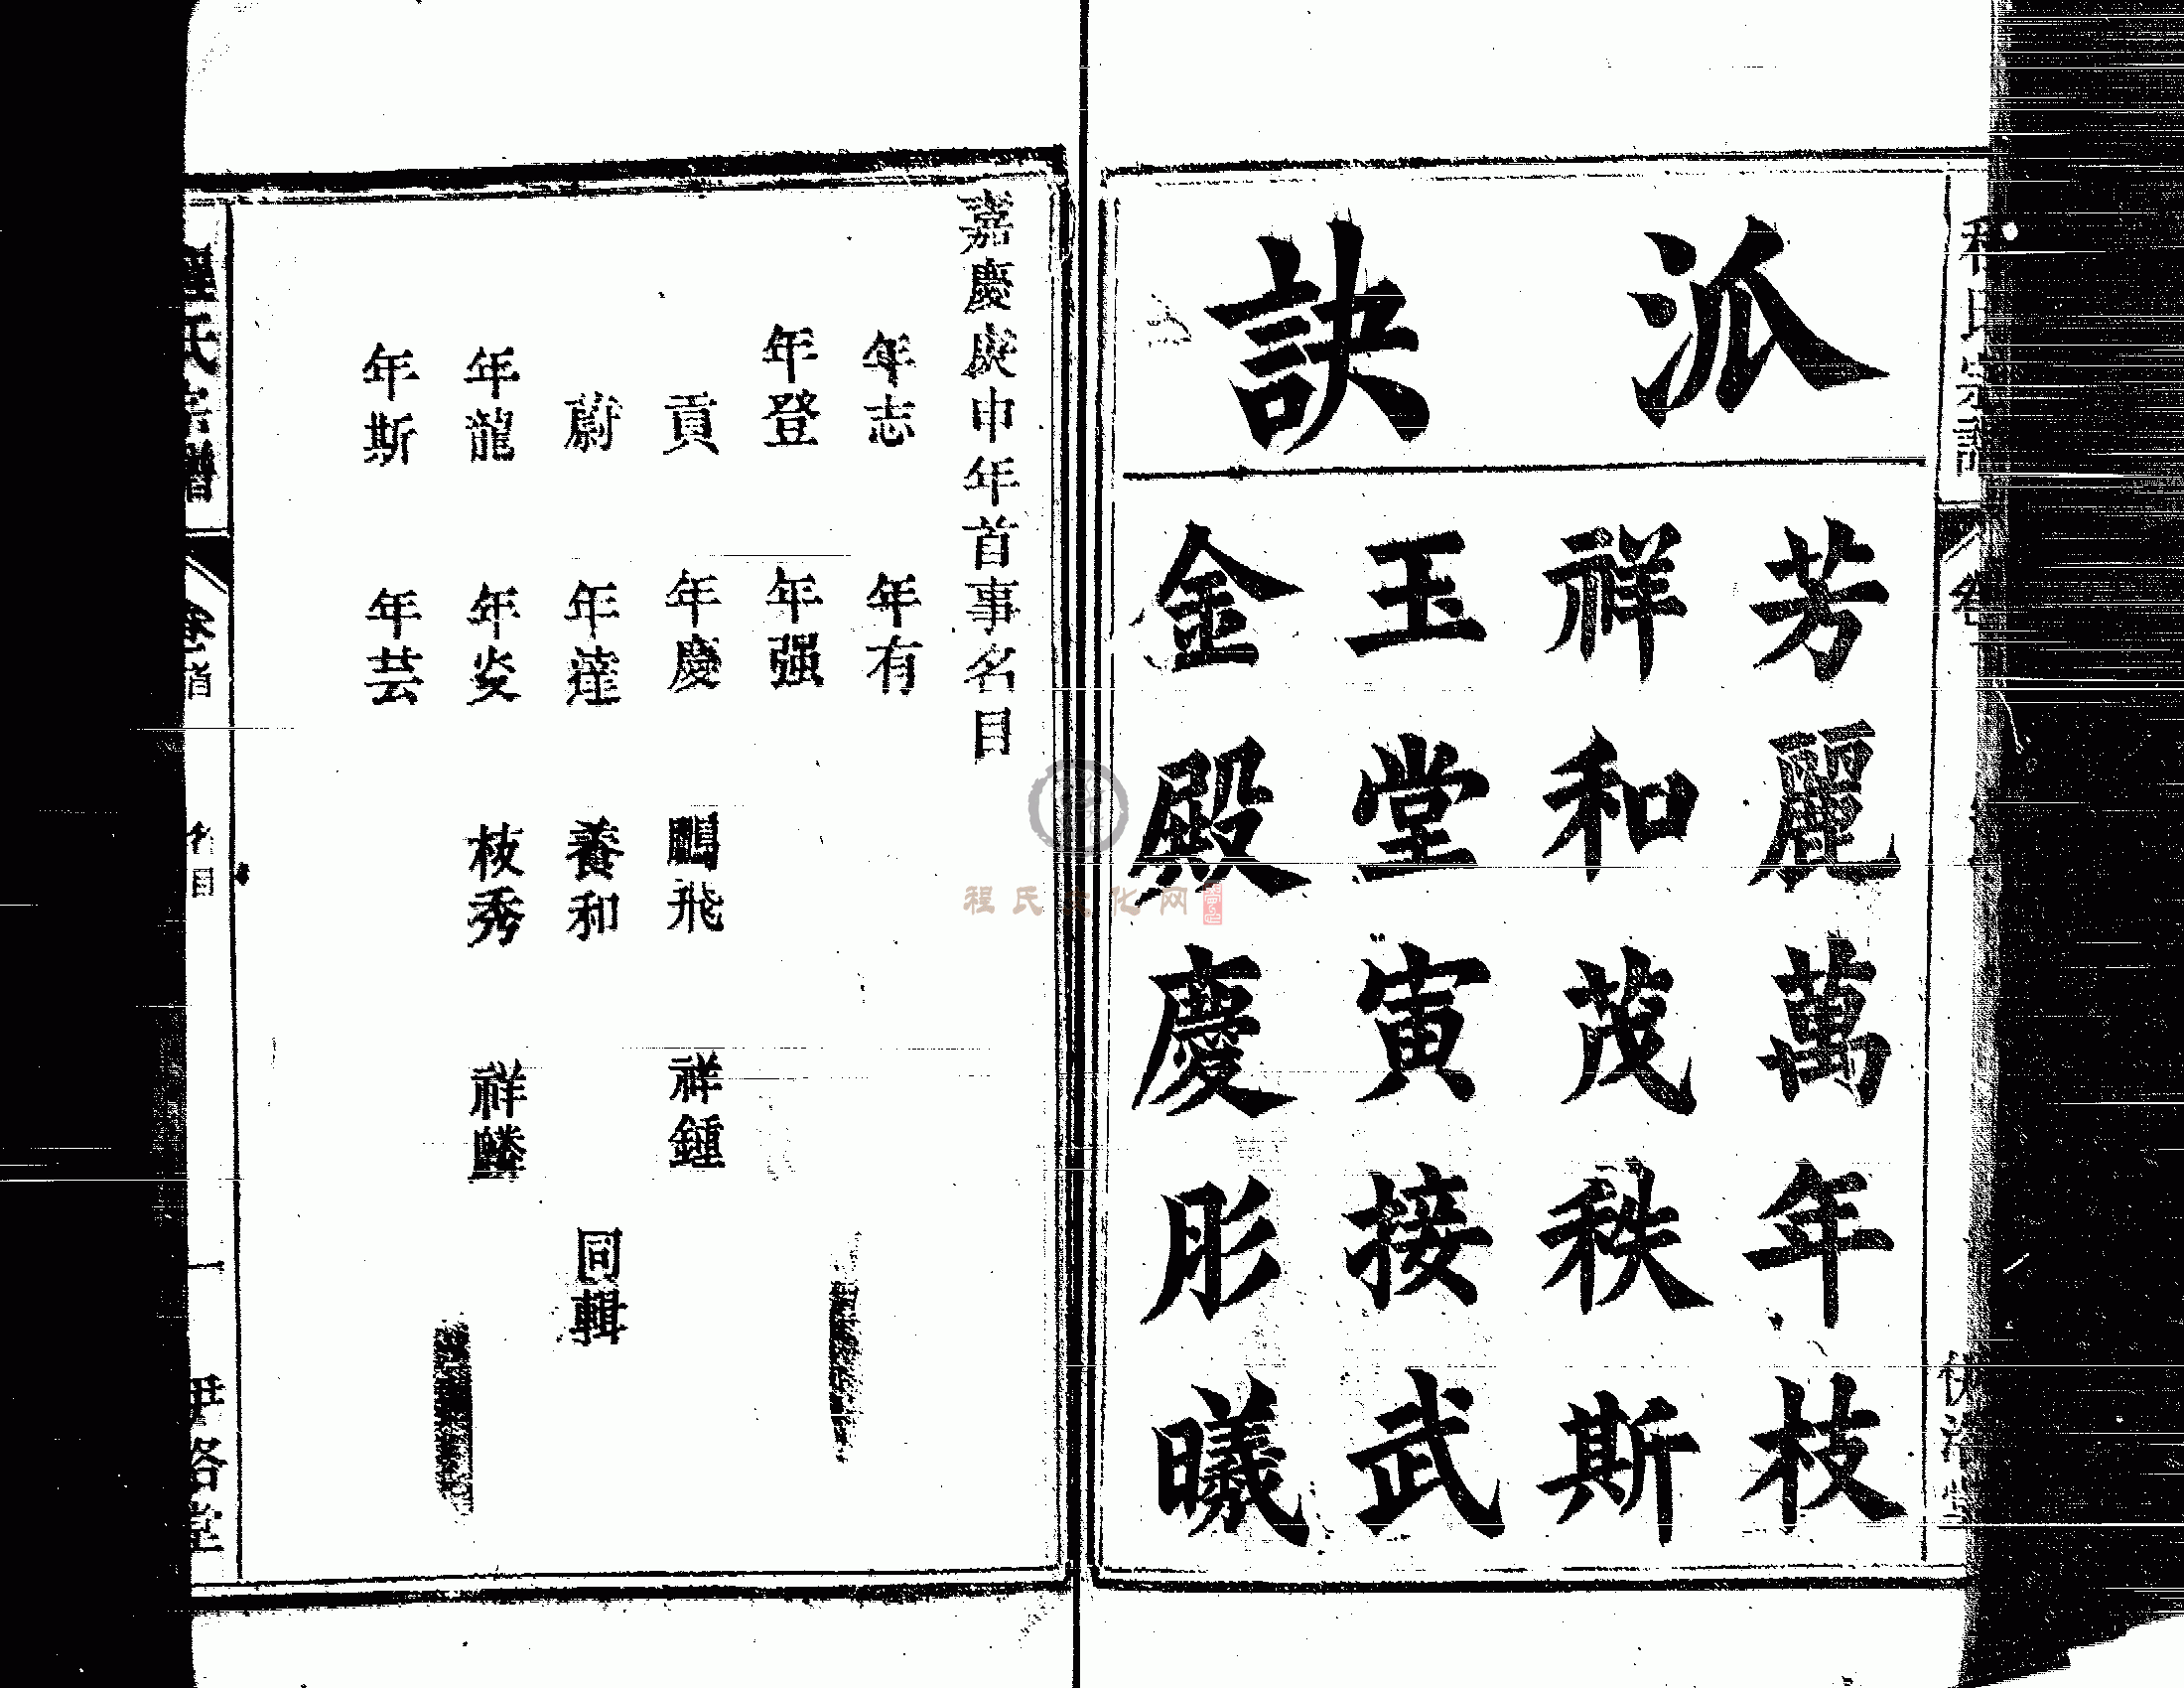 派訣
芳麗萬年枝
祥和茂秩斯
玉堂寅接武
金殿慶彤曦
嘉慶庚申年首事名目
年志 年有
年登 年强
貢 年慶 鵬飛 祥鍾
蔚 年達 養和 同輯
年龍 年炎 枝秀 祥麟
年斯 年芸
程氏宗譜 卷首 名目 一 伊洛堂
程氏文化网